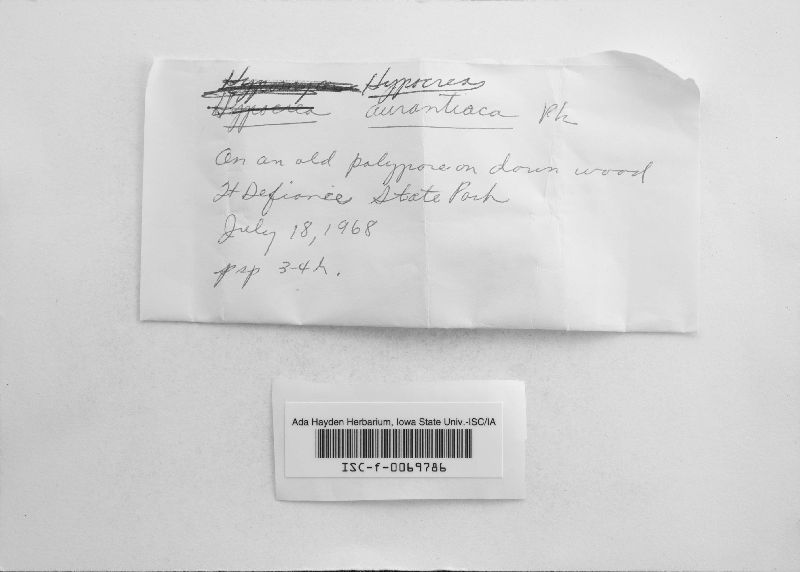 Hypocrea Hypocrea
aurantiaca Pk
On an old polypore on down wood
Ft Defiance State Park
July 18, 1968
psp 3-4h.
Ada Hayden Herbarium, Iowa State Univ.-ISC/IA
ISC-f-0069786